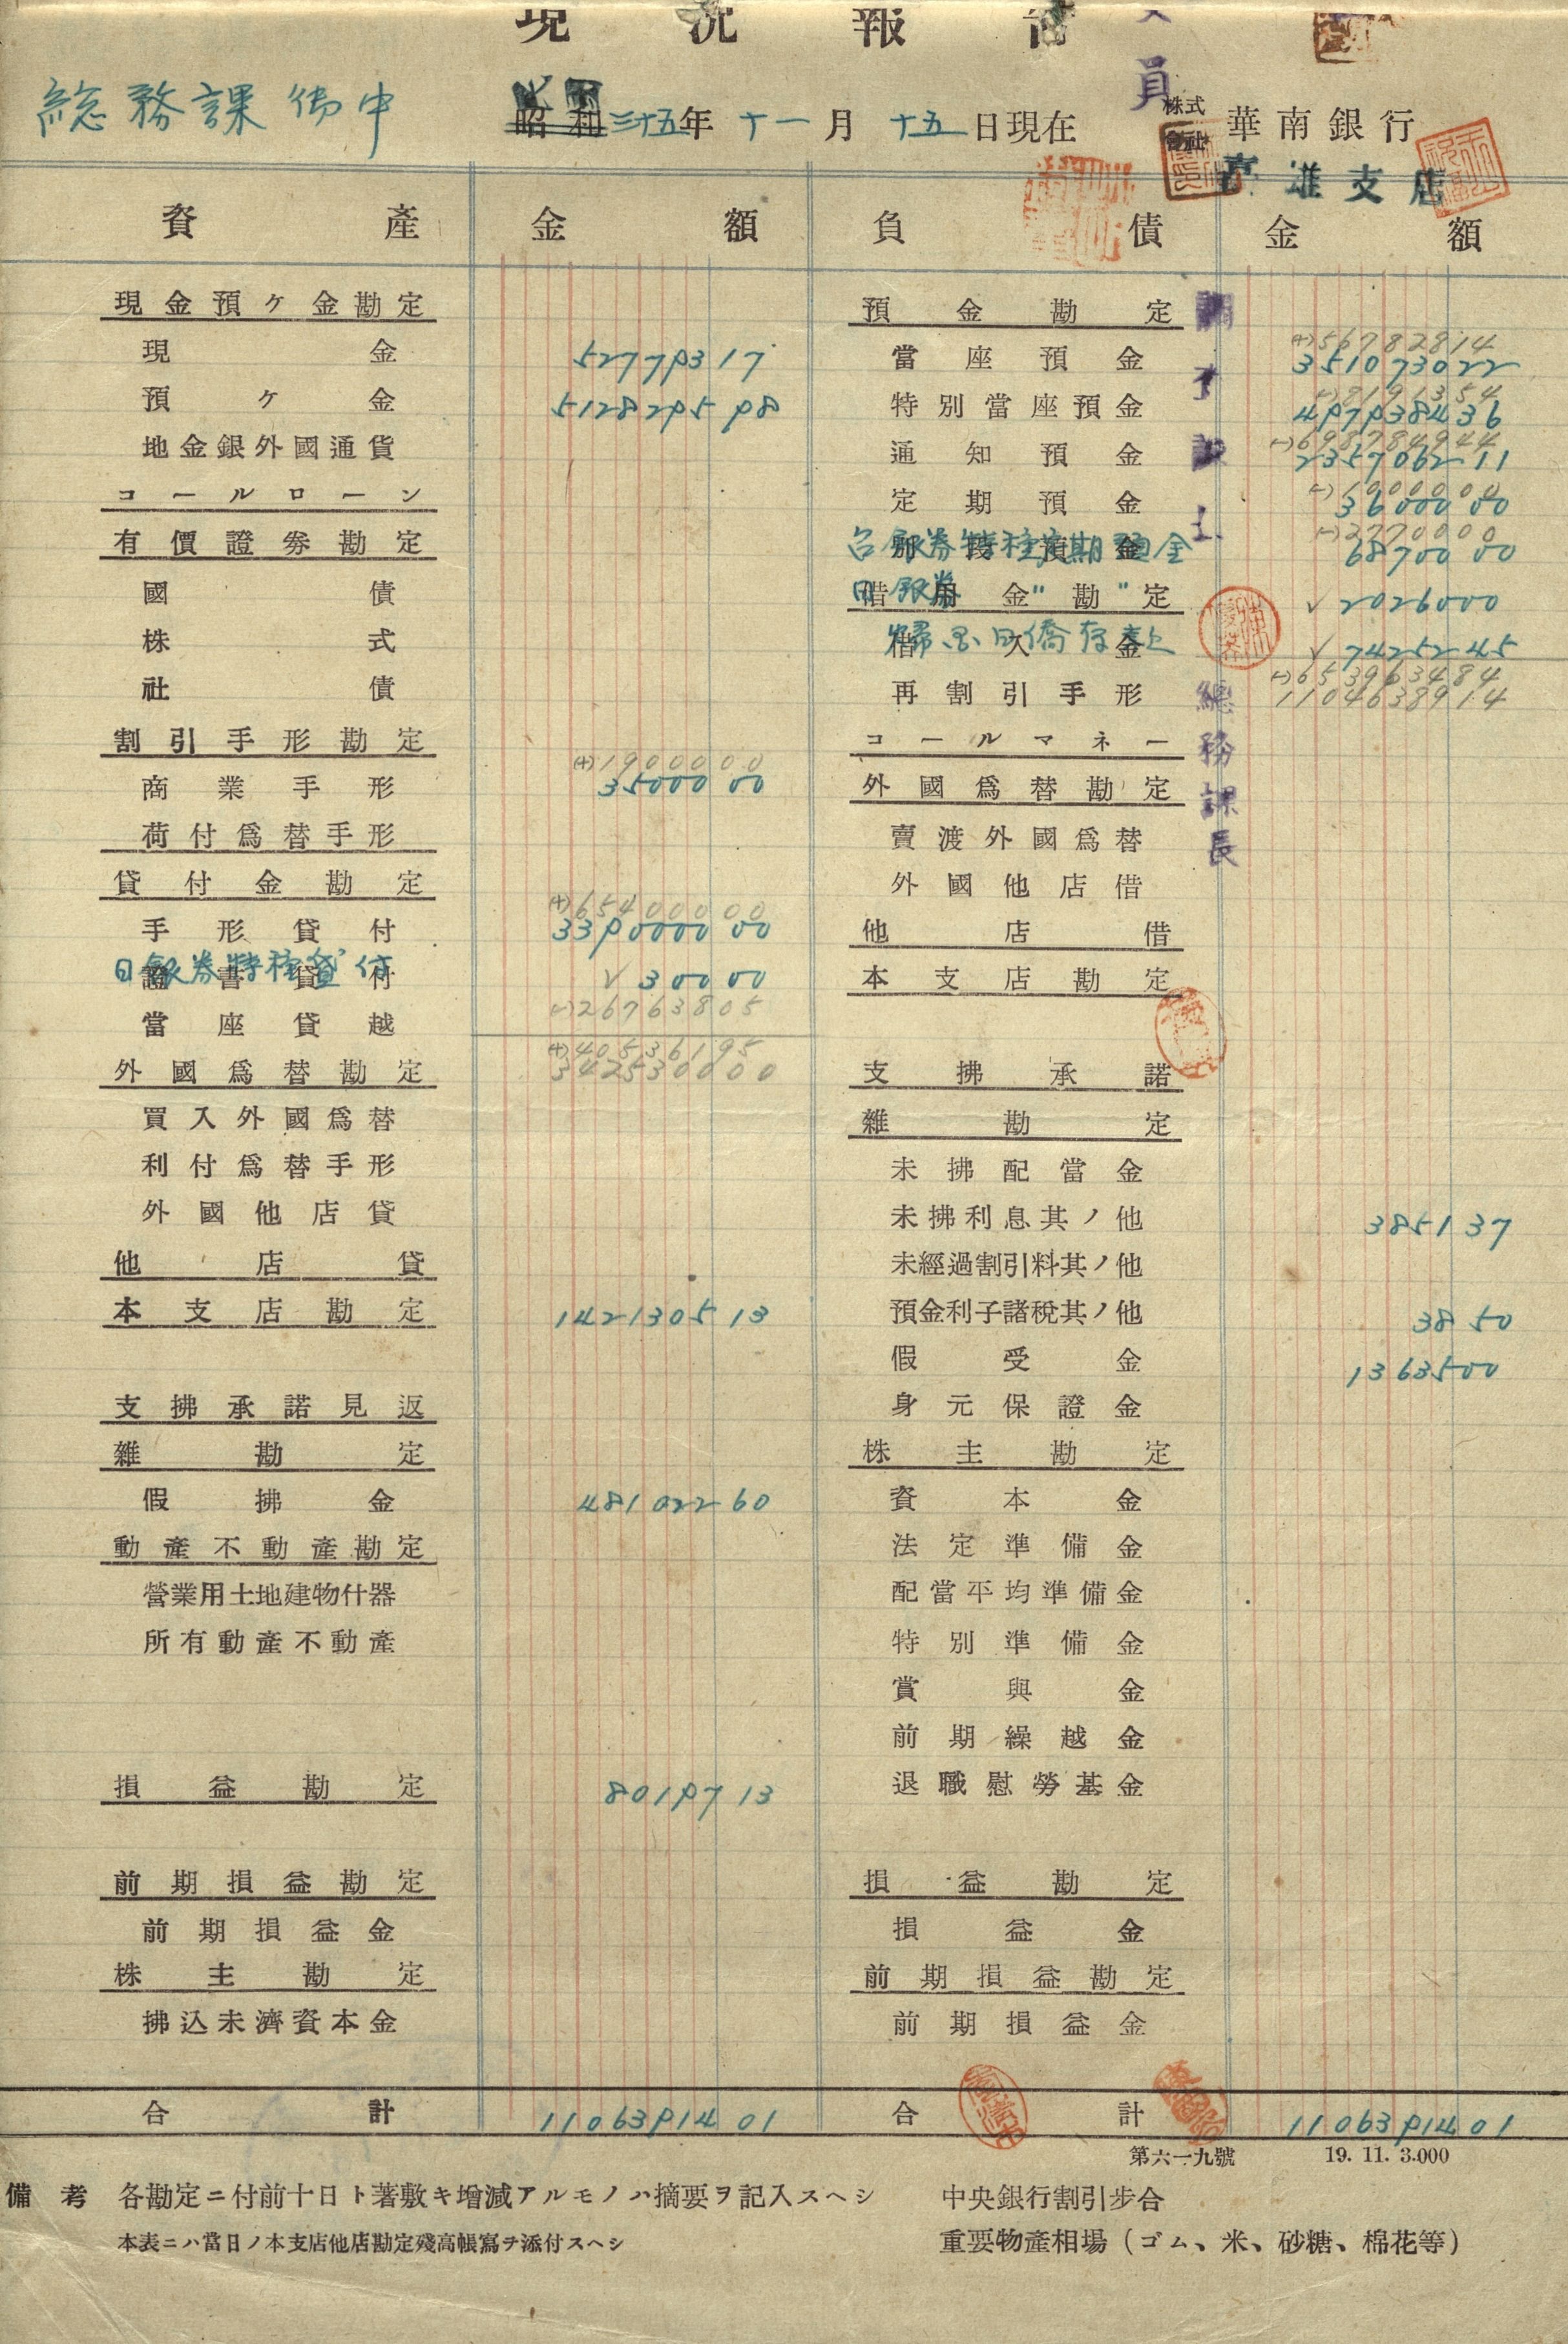 現況報告
員
總務課御中
昭和三十五年十一月十五日現在
株式會社 華南銀行
高雄支店
資產 金額 負債 金額
現金預ケ金勘定
現金 527793 17
預ケ金 5128295 98
地金銀外國通貨
コールローン
有價證券勘定
國債
株式
社債
割引手形勘定
(+)1900000
商業手形 35000 00
荷付爲替手形
貸付金勘定
(+)65400000
手形貸付 3390000 00
證書貸付
日銀券特種貸付 √ 300 00
(-)26763805
當座貸越
(+)40536195
342530000
外國爲替勘定
買入外國爲替
利付爲替手形
外國他店貸
他店貸
本支店勘定 1421305 13
支拂承諾見返
雜勘定
假拂金 481022 60
動產不動產勘定
營業用土地建物什器
所有動產不動產
損益勘定 80197 13
前期損益勘定
前期損益金
株主勘定
拂込未濟資本金
合計 11063914 01
預金勘定
(+)56782814
當座預金 3510730 22
(-)8191354
特別當座預金 4979384 36
(-)698784944
通知預金 2357062 11
(-)1000000
定期預金 36000 00
(-)2770000
別段預金
台銀券特種定期預金 68700 00
借用金勘定
日銀券 〃 〃 √ 20260 00
借入金
歸國日僑存款 √ 74252 45
(-)653963484
1104638914
再割引手形
コールマネー
外國爲替勘定
賣渡外國爲替
外國他店借
他店借
本支店勘定
支拂承諾
雜勘定
未拂配當金
未拂利息其ノ他 3851 37
未經過割引料其ノ他
預金利子諸稅其ノ他 38 50
假受金 13635 00
身元保證金
株主勘定
資本金
法定準備金
配當平均準備金
特別準備金
賞與金
前期繰越金
退職慰勞基金
損益勘定
損益金
前期損益勘定
前期損益金
合計 11063914 01
總務課長
第六一九號 19. 11. 3.000
備考 各勘定ニ付前十日ト著敷キ增減アルモノハ摘要ヲ記入スヘシ
本表ニハ當日ノ本支店他店勘定殘高帳寫ヲ添付スヘシ
中央銀行割引步合
重要物產相場（ゴム、米、砂糖、棉花等）